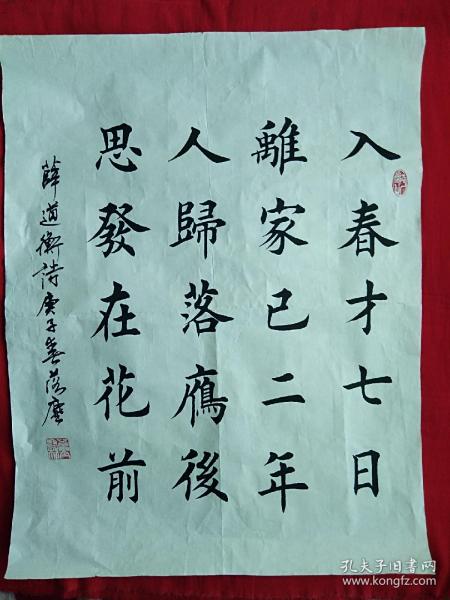 入春才七日
離家已二年
人歸落鴈後
思發在花前
薛道衡詩庚子春
孔夫子旧书网
www.kongfz.com